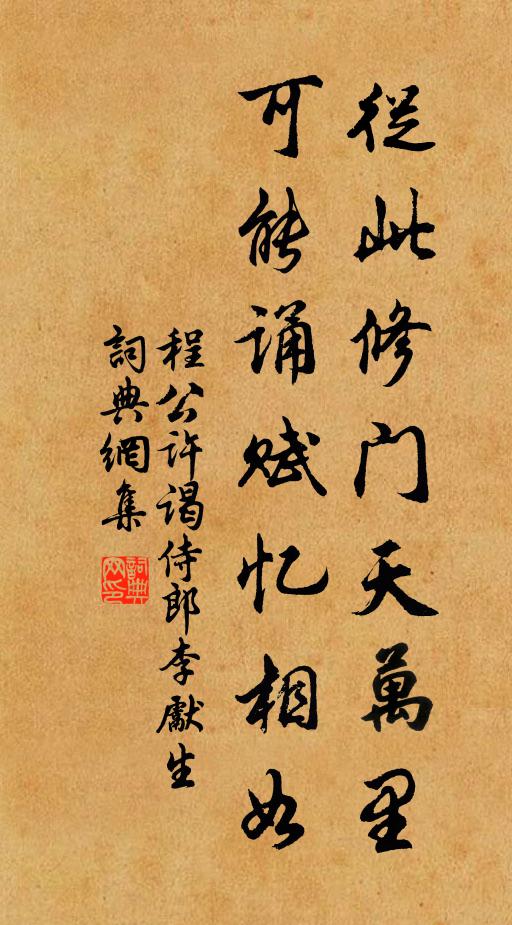 從此修门天萬里
可能诵赋忆相如
程公许谒侍郎李獻生
詞典網集
詞典网印